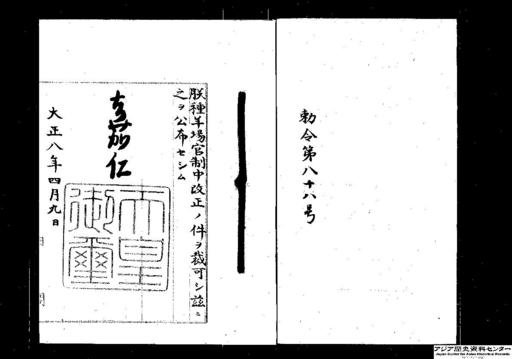 勅令第八十八号
朕種羊場官制中改正ノ件ヲ裁可シ茲ニ
之ヲ公布セシム
嘉仁
天皇御璽
大正八年四月九日
アジア歴史資料センター
Japan Center for Asian Historical Records